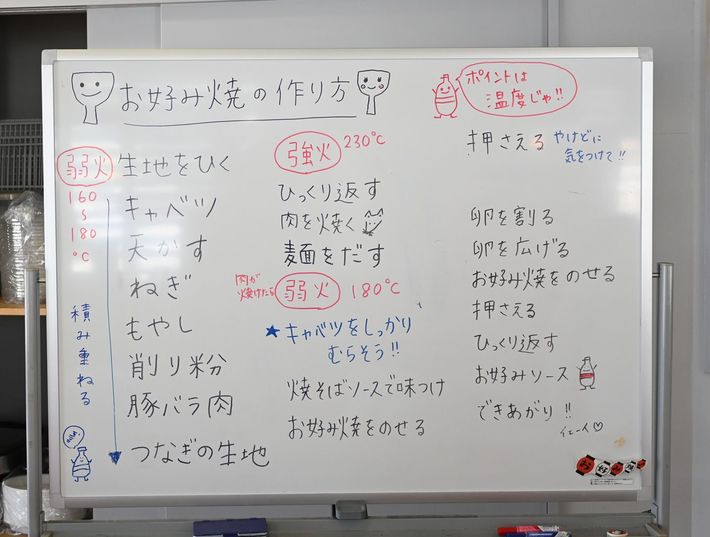 お好み焼の作り方
弱火
160
〜
180
℃
積み重ねる
生地をひく
キャベツ
天かす
ねぎ
もやし
削り粉
豚バラ肉
つなぎの生地
強火 230℃
ひっくり返す
肉を焼く
麺をだす
肉が
焼けたら
弱火 180℃
★キャベツをしっかり
むらそう!!
焼そばソースで味つけ
お好み焼をのせる
ポイントは
温度じゃ!!
押さえる やけどに
気をつけて!!
卵を割る
卵を広げる
お好み焼をのせる
押さえる
ひっくり返す
お好みソース
できあがり!!
イェーイ♡